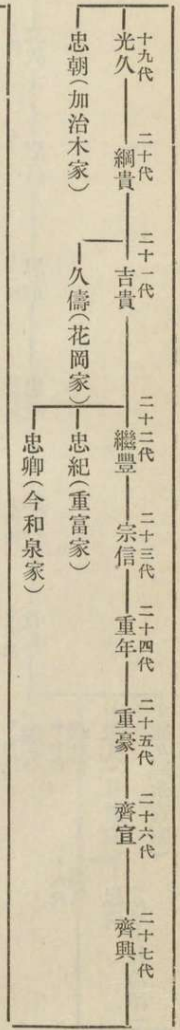 十九代
光久
二十代
綱貴
二十一代
吉貴
二十二代
繼豐
二十三代
宗信
二十四代
重年
二十五代
重豪
二十六代
齊宣
二十七代
齊興
忠朝(加治木家)
久儔(花岡家)
忠紀(重富家)
忠卿(今和泉家)